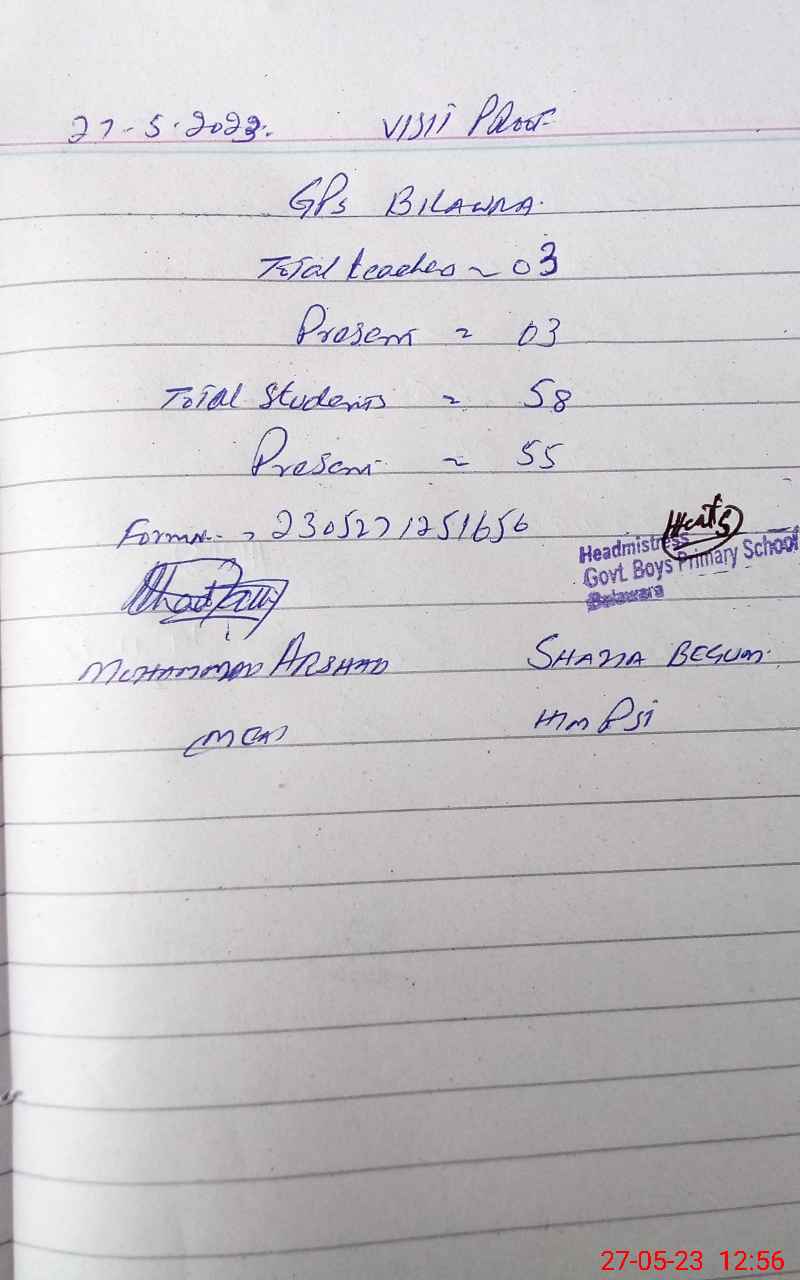 27-5-2023. VISIT PROOF
GPS BILAWRA.
Total teachers ~ 03
Present = 03
Total Students = 58
Present ~ 55
Form No. > 2305271251656
Headmistress
Govt. Boys Primary School
Balawara
MUHAMMAD ARSHAD SHAZIA BEGUM.
MEA HM PSI
27-05-23 12:56